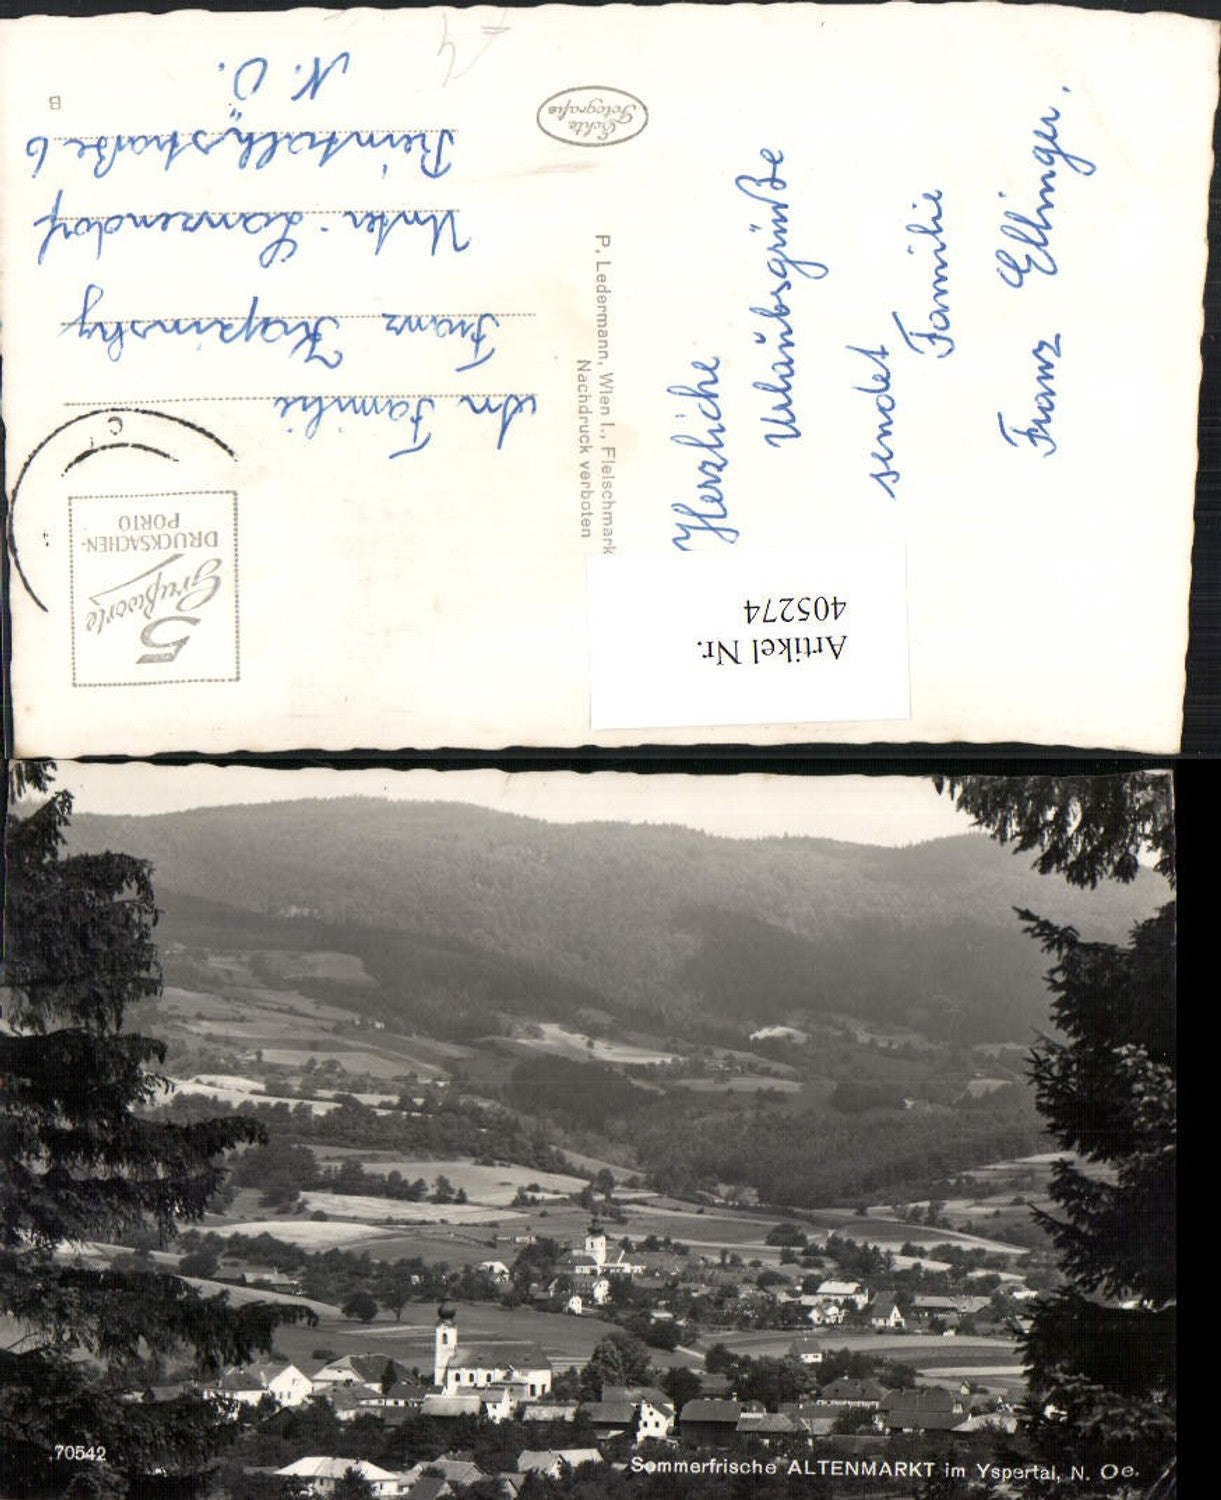 Herzliche
Urlaubsgrüße
sendet
Familie
Franz Ellinger.
P. Ledermann, Wien I., Fleischmark
Nachdruck verboten
Echte
Fotografie
5
Grußworte
DRUCKSACHEN-
PORTO
An Familie
Franz
Unter-Lanzendorf
6
N. Ö.
B
Artikel Nr.
405274
70542
Sommerfrische ALTENMARKT im Yspertal, N. Oe.